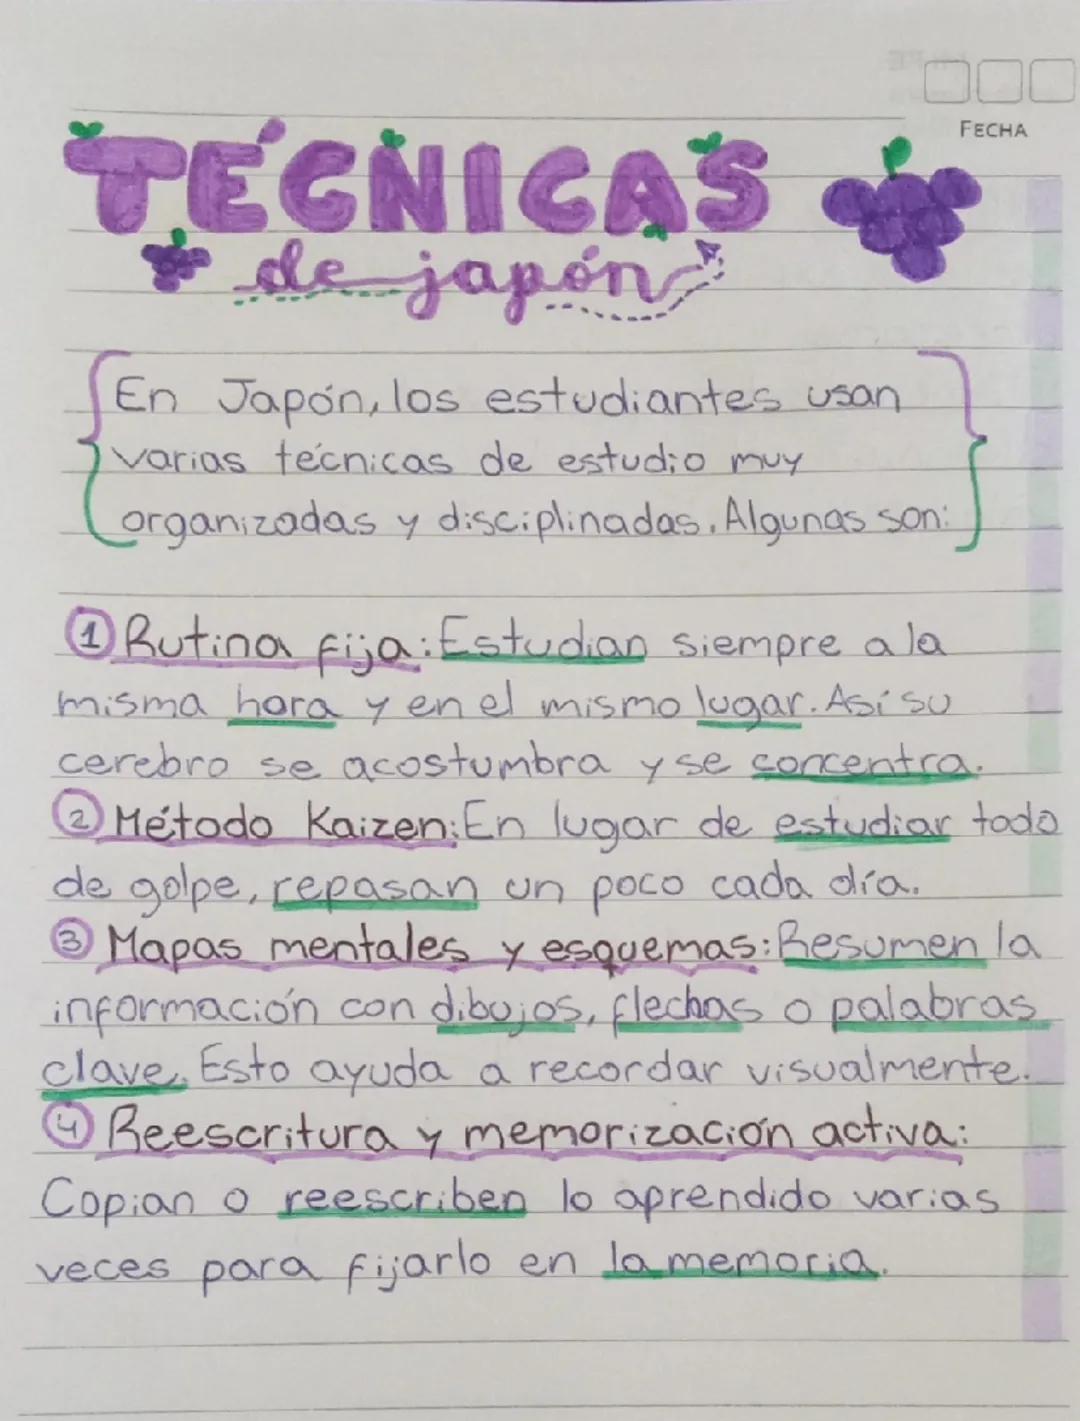 FECHA
TÉCNICAS
de japón
En Japón, los estudiantes usan
varias técnicas de estudio muy
organizadas y disciplinadas. Algunas son:
1 Rutina fija: Estudian siempre a la
misma hora y en el mismo lugar. Así su
cerebro se acostumbra y se concentra.
2 Método Kaizen: En lugar de estudiar todo
de golpe, repasan un poco cada día.
3 Mapas mentales y esquemas: Resumen la
información con dibujos, flechas o palabras
clave. Esto ayuda a recordar visualmente.
4 Reescritura y memorización activa:
Copian o reescriben lo aprendido varias
veces para fijarlo en la memoria.